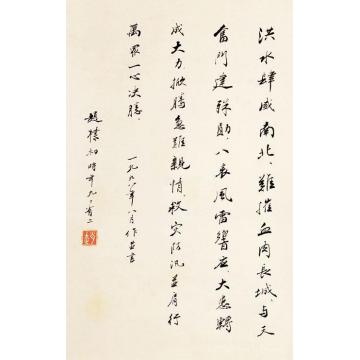 洪水肆威南北，难摧血肉长城，与天
奋鬥建殊勋，八表风雷响应，大愚转
成大力，掀腾急难亲情，救灾防汛并肩行
万众一心决胜，
一九九八年八月作并书
赵朴初时年九十有二